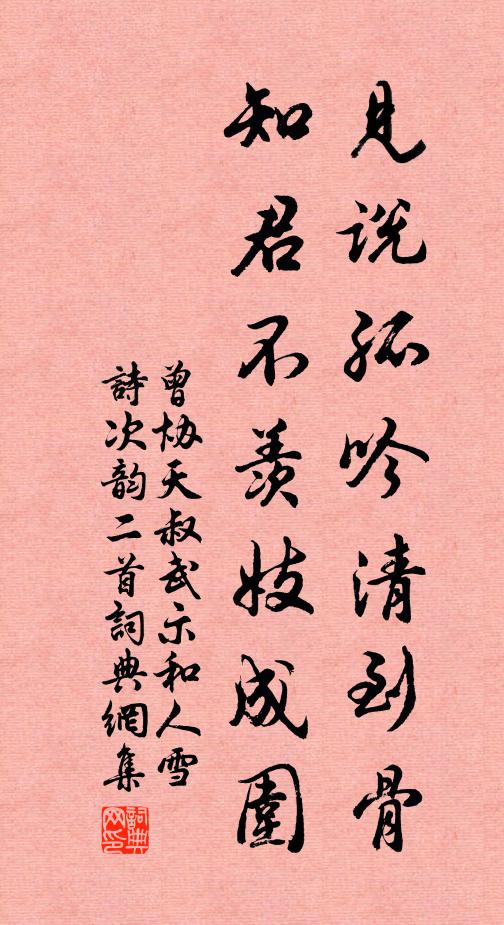 見說孤吟清到骨
知君不羨妓成圍
曾協天叔武示和人雪
詩次韵二首詞典網集
詞典
网印